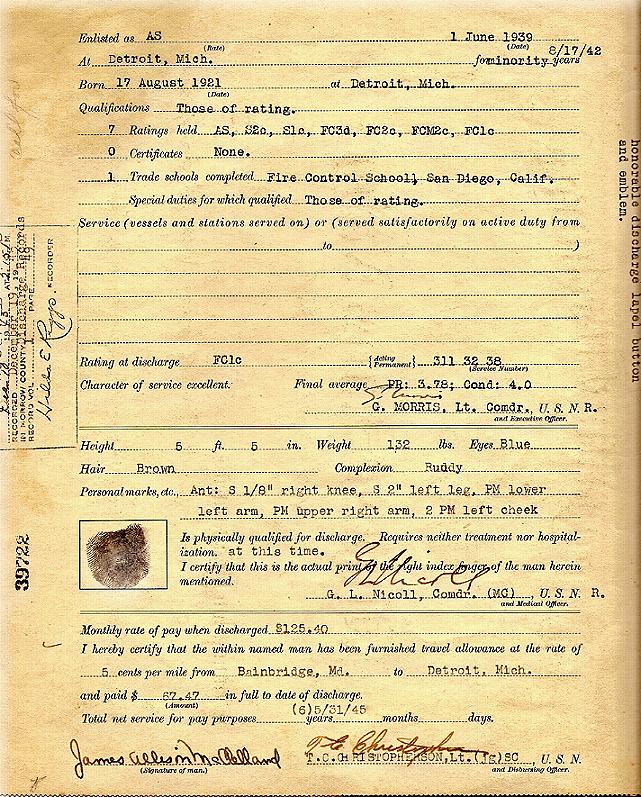 Enlisted as AS 1 June 1939
(Rate) (Date) 8/17/42
At Detroit, Mich. for minority years
Born 17 August 1921 at Detroit, Mich.
(Date)
Qualifications Those of rating.
7 Ratings held AS, S2c, S1c, FC3d, FC2c, FCM2c, FC1c
0 Certificates None.
1 Trade schools completed Fire Control School, San Diego, Calif.
Special duties for which qualified Those of rating.
Service (vessels and stations served on) or (served satisfactorily on active duty from
to )
Rating at discharge FC1c {Acting Permanent} 311 32 38
(Service Number)
Character of service excellent. Final average PR: 3.78; Cond: 4.0
G. MORRIS, Lt. Comdr., U. S. N. R.
and Executive Officer.
Height 5 ft. 5 in. Weight 132 lbs. Eyes Blue
Hair Brown Complexion Ruddy
Personal marks, etc., Ant: S 1/8" right knee, S 2" left leg, PM lower
left arm, PM upper right arm, 2 PM left cheek
Is physically qualified for discharge. Requires neither treatment nor hospital-
ization. at this time.
I certify that this is the actual print of the right index finger of the man herein
mentioned.
G. L. Nicoll, Comdr. (MC), U. S. N. R.
and Medical Officer.
Monthly rate of pay when discharged $125.40
I hereby certify that the within named man has been furnished travel allowance at the rate of
5 cents per mile from Bainbridge, Md. to Detroit, Mich.
and paid $ 67.47 in full to date of discharge.
(Amount)
(6)5/31/45
Total net service for pay purposes years, months, days.
James Allison McClelland
(Signature of man.)
T. C. Christopherson
T.C. CHRISTOPHERSON, Lt.(jg)SC, U. S. N.
and Disbursing Officer.
honorable discharge lapel button
and emblem.
RECORDED
IN MORROW COUNTY Discharge Records
RECORD VOL. PAGE 49
Hilda E
RECORDER
39722